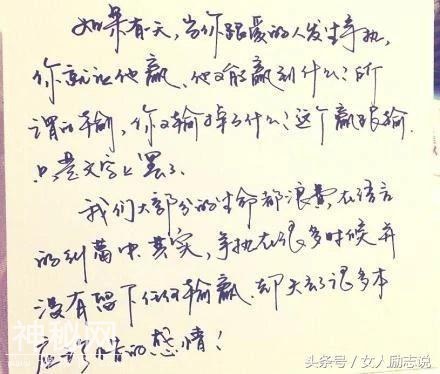 如果有一天，当你跟爱的人发生争执，
你就让他赢，他又能赢到什么？所
谓的输，你又输掉了什么？这个赢跟输，
只是文字上罢了。
我们大部分的生命都浪费在语言
的纠葛中。其实，争执在很多时候并
没有留下任何输赢，却失去了很多本
应珍惜的感情！
神秘网
头条号／女人励志说